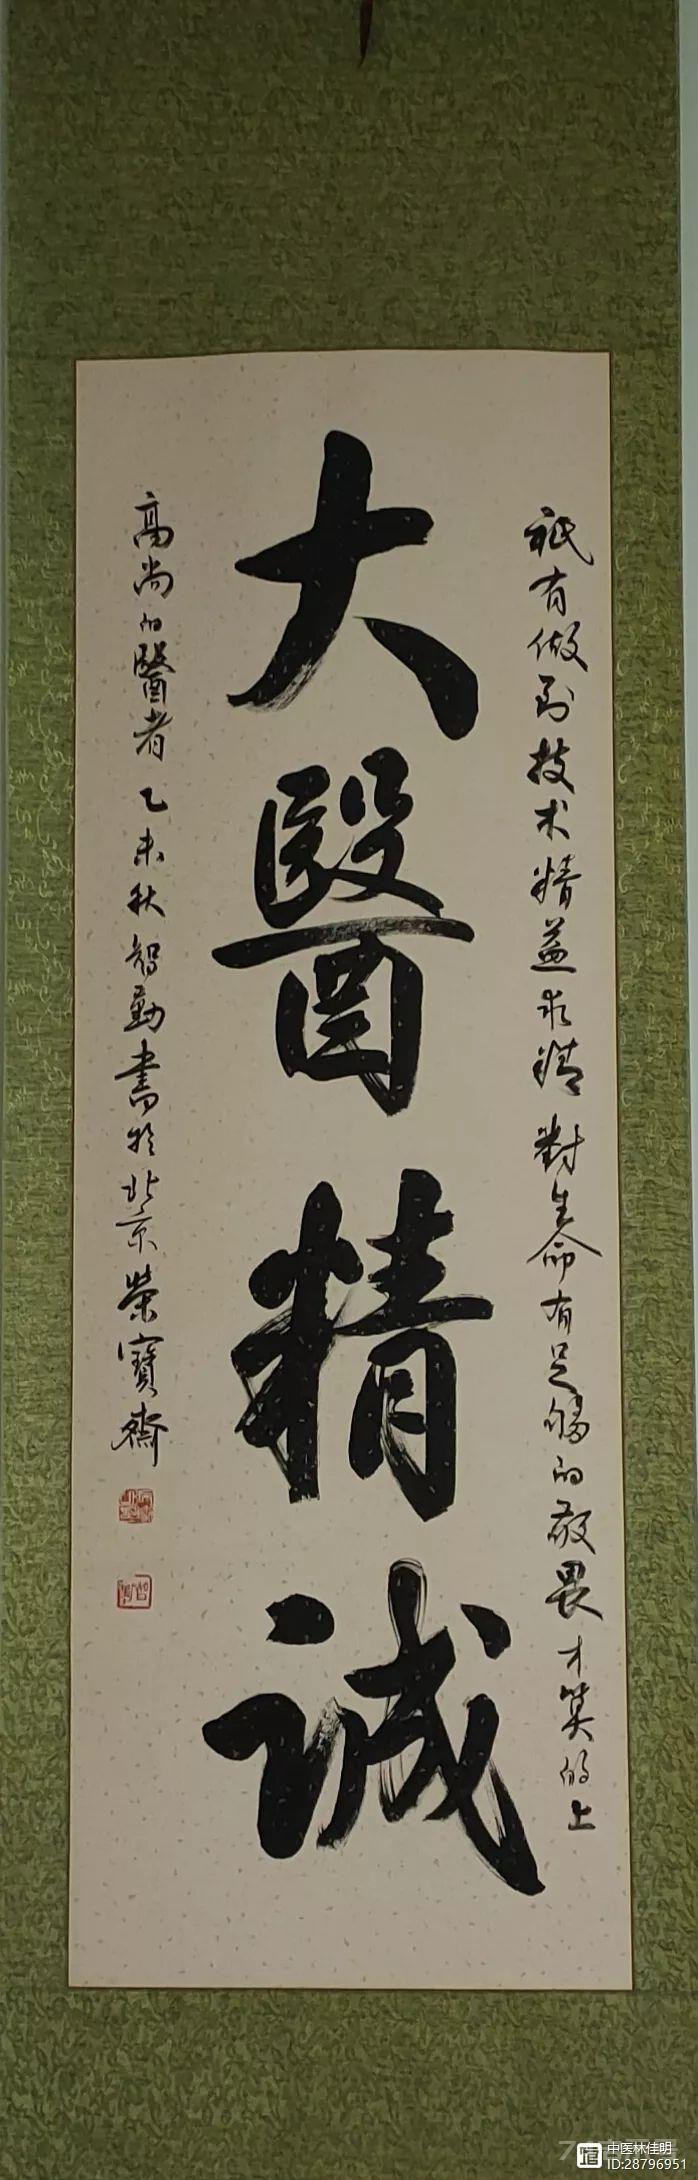 祇有做到技术精益求精對生命有足够的敬畏才算的上
大醫精诚
高尚的醫者 乙未秋智勤書於北京榮寶齋
中医林佳明
ID:28796951